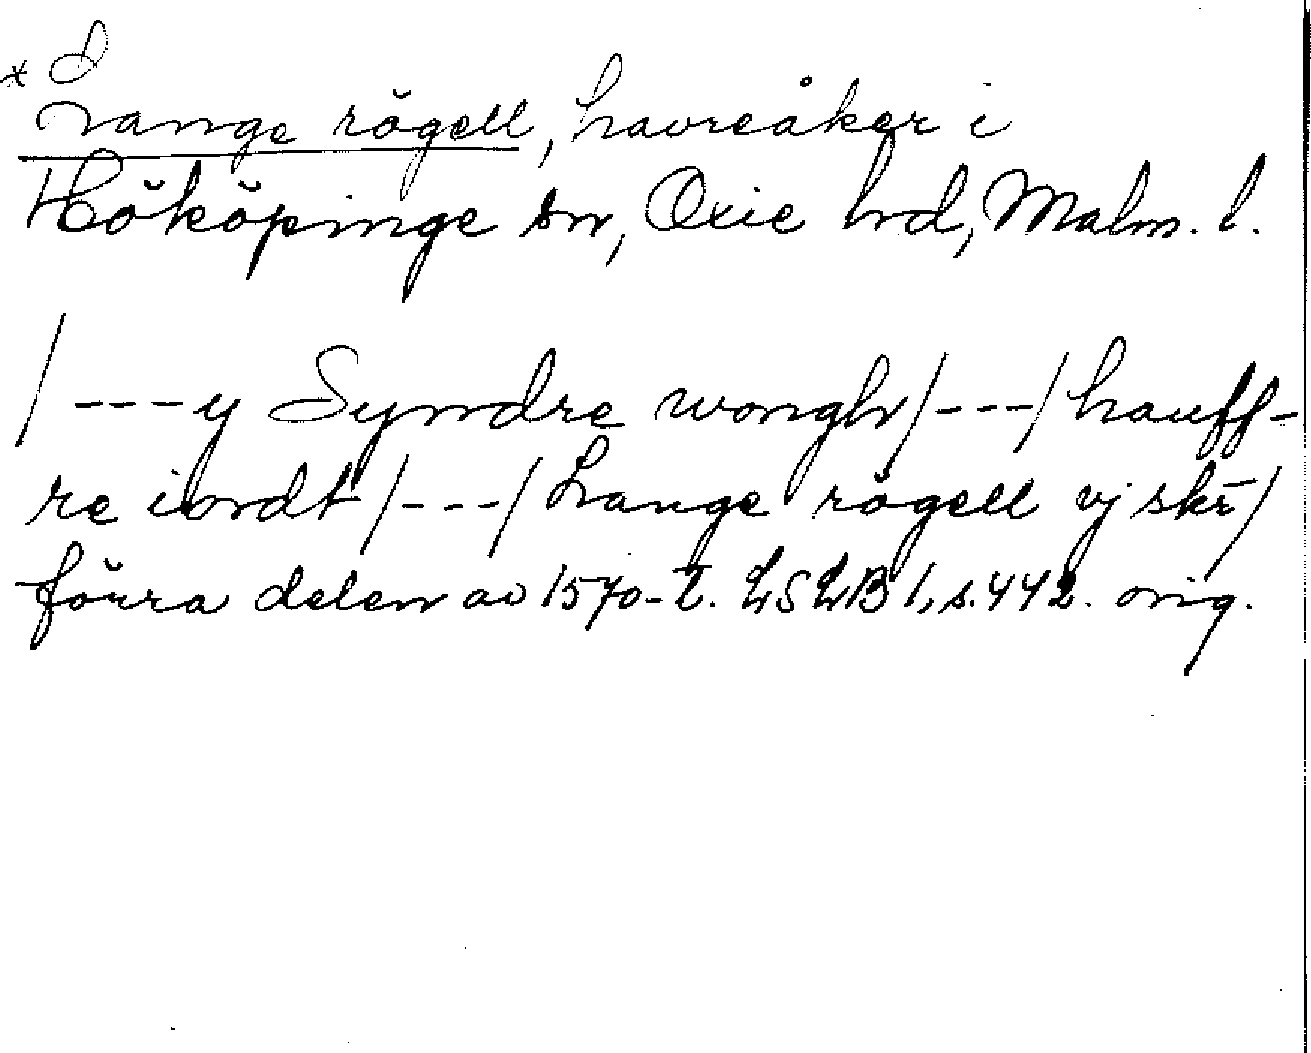 x Lange rögell, havreåker i
Hököpinge sn, Oxie hrd, Malm. l.
/---y Syndre wongh/---/hauff-
re iordt/---/Lange rögell vj skr/
förra delen av 1570-t. LSLB 1, s. 442. orig.